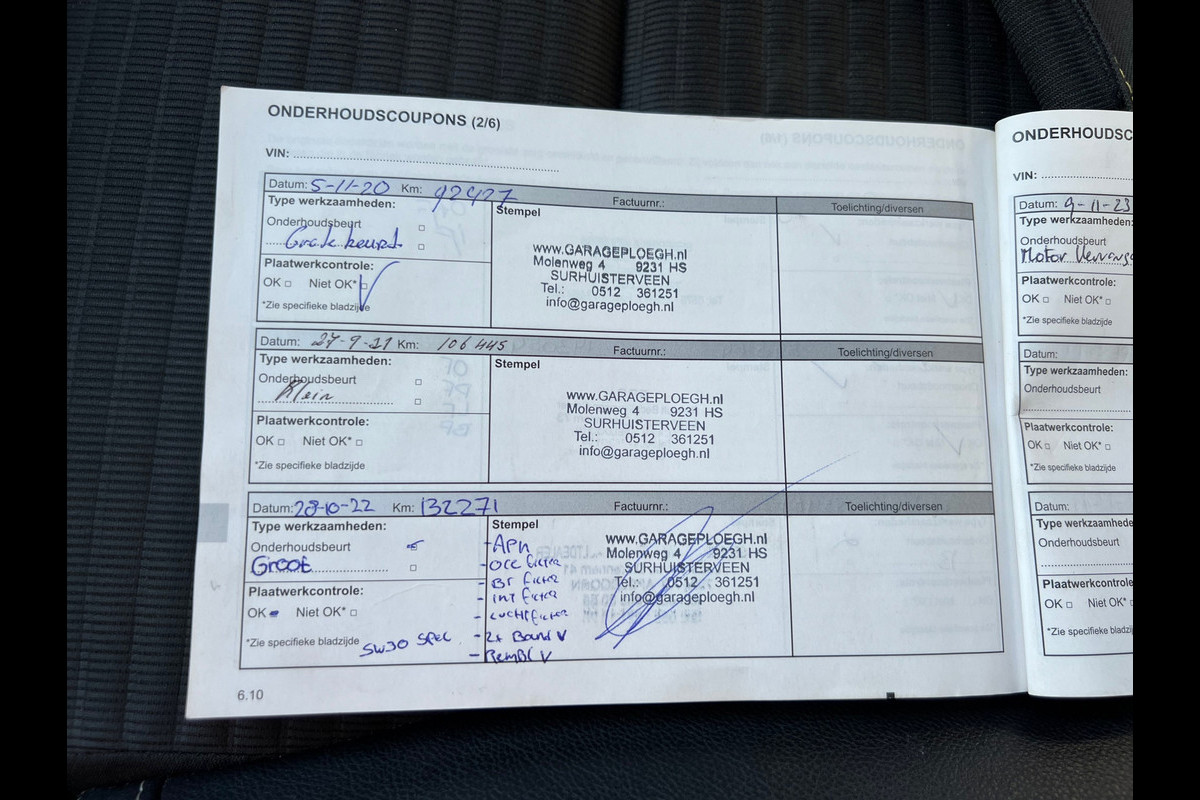 ONDERHOUDSCOUPONS (2/6)
VIN:
Datum: 5-11-20 Km: 92427 Factuurnr.: Toelichting/diversen
Type werkzaamheden: Stempel
Onderhoudsbeurt
Grote beurt
Plaatwerkcontrole:
OK Niet OK*
*Zie specifieke bladzijde
www.GARAGEPLOEGH.nl
Molenweg 4 9231 HS
SURHUISTERVEEN
Tel.: 0512 361251
info@garageploegh.nl
Datum: 27-9-21 Km: 106445 Factuurnr.: Toelichting/diversen
Type werkzaamheden: Stempel
Onderhoudsbeurt
Klein
Plaatwerkcontrole:
OK Niet OK*
*Zie specifieke bladzijde
www.GARAGEPLOEGH.nl
Molenweg 4 9231 HS
SURHUISTERVEEN
Tel.: 0512 361251
info@garageploegh.nl
Datum: 28-10-22 Km: 132271 Factuurnr.: Toelichting/diversen
Type werkzaamheden: Stempel
Onderhoudsbeurt
Groot
Plaatwerkcontrole:
OK Niet OK*
*Zie specifieke bladzijde
5W30 SPEC
- APK
- OLIE filter
- Br filter
- int filter
- luchtfilter
- 2x Band V
- RemBl V
www.GARAGEPLOEGH.nl
Molenweg 4 9231 HS
SURHUISTERVEEN
Tel.: 0512 361251
info@garageploegh.nl
6.10
ONDERHOUDSC
VIN:
Datum: 9-11-23
Type werkzaamheden:
Onderhoudsbeurt
Motor Vervangs
Plaatwerkcontrole:
OK Niet OK*
*Zie specifieke bladzijde
Datum:
Type werkzaamheden:
Onderhoudsbeurt
Plaatwerkcontrole:
OK Niet OK*
*Zie specifieke bladzijde
Datum:
Type werkzaamhede
Onderhoudsbeurt
Plaatwerkcontrole
OK Niet OK*
*Zie specifieke bladzij